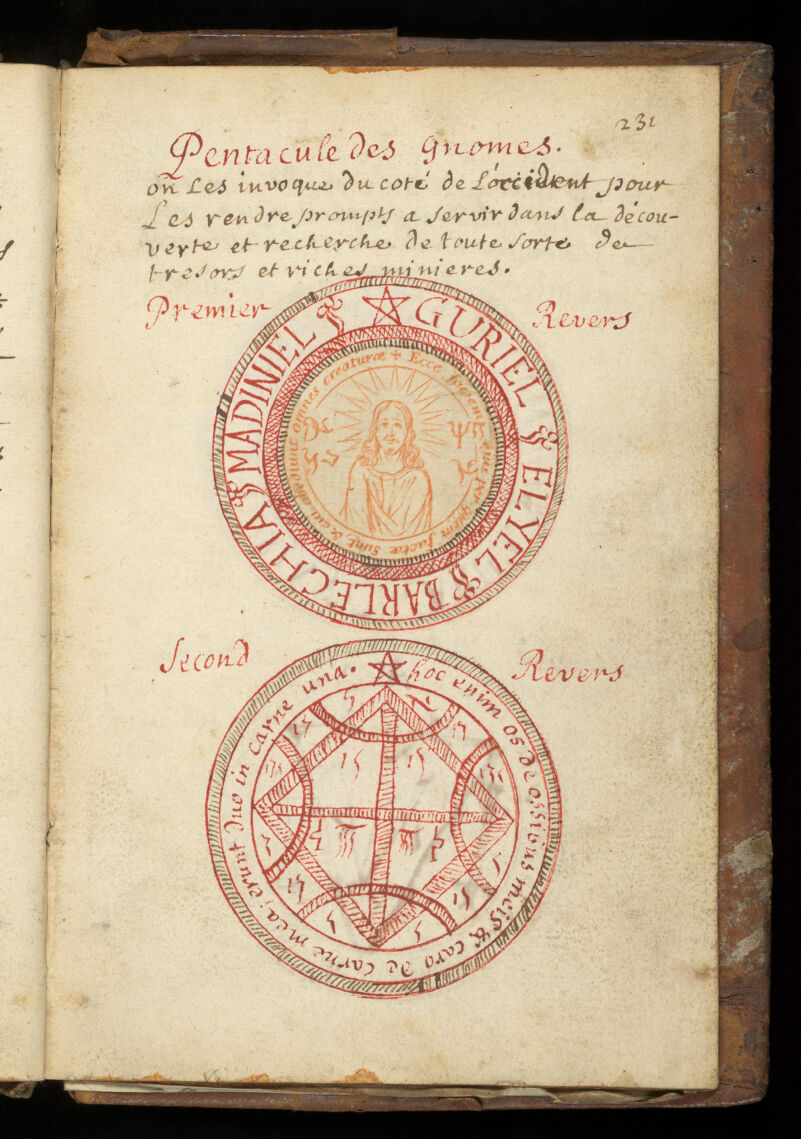 231
Pentacule des gnomes.
on Les invoque du coté de L'occident pour
Les rendre prompts a servir dans la décou-
verte et recherche de toute sorte de
tresors et riches minieres.
Premier Revers
GURIEL ELYEL BARLECHIA MADINIEL
+ Ecce per quem factæ sunt & cui obediunt omnes creaturæ
Second Revers
hoc enim os de ossibus meis & caro de carne mea, erunt duo in carne una.